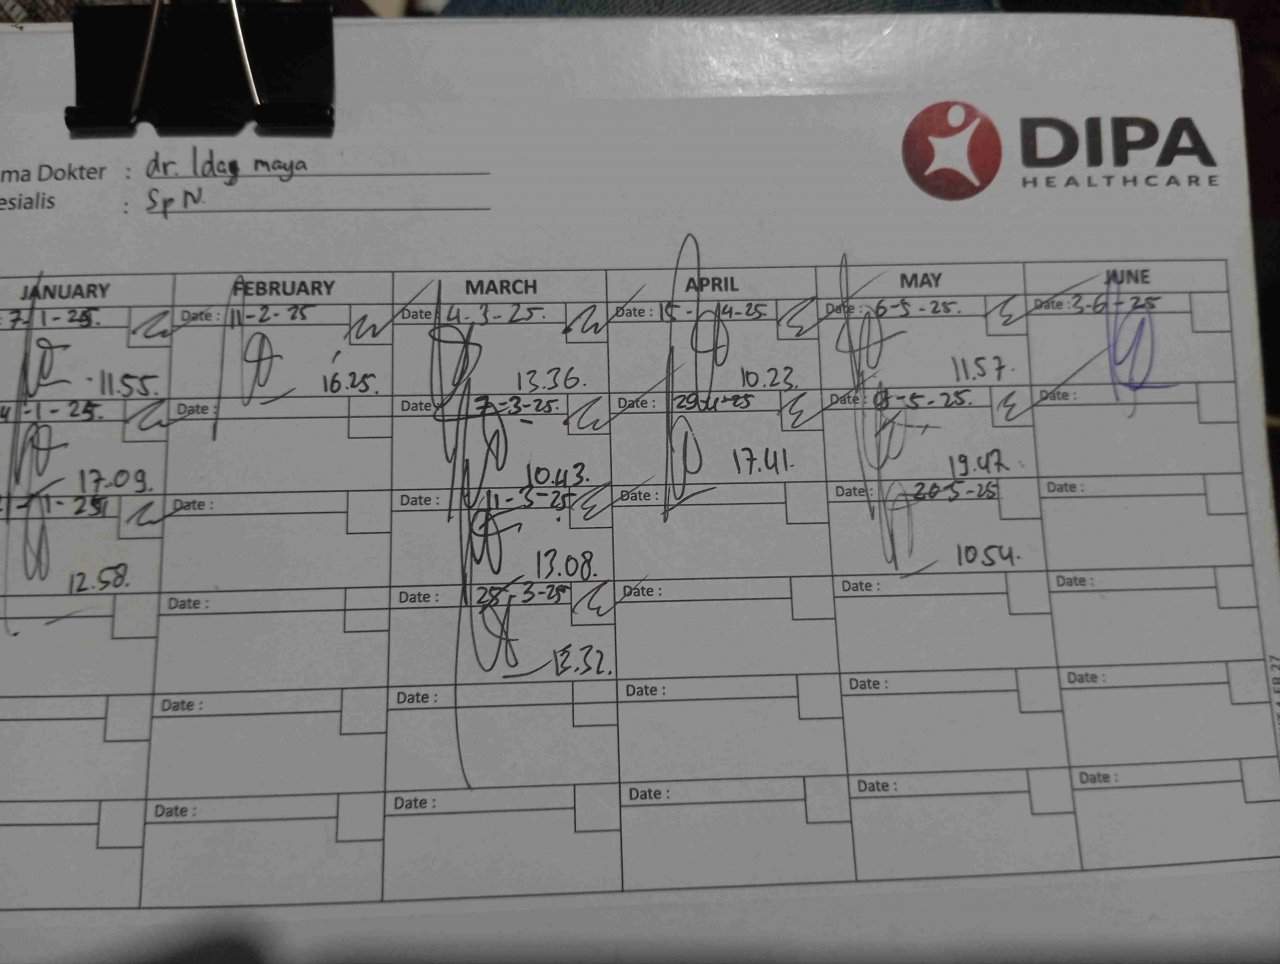 DIPA
HEALTHCARE
ma Dokter : dr. Ida maya
esialis : SpN.
JANUARY FEBRUARY MARCH APRIL MAY JUNE
7-1-25. Date : 11-2-25 Date : 4-3-25. Date : 15-4-25 Date : 6-5-25. Date : 3-6-25
11.55. 16.25. 13.36. 10.23. 11.57.
-1-25. Date : Date : 7-3-25. Date : 29-4-25 Date : -5-25. Date :
17.09. 10.43. 17.41. 19.47.
-1-25 Date : Date : 11-3-25 Date : Date : 20-5-25 Date :
12.58. 13.08. 10.54.
Date : Date : 25-3-25 Date : Date : Date :
13.32.
Date : Date : Date : Date : Date :
Date : Date : Date : Date : Date :